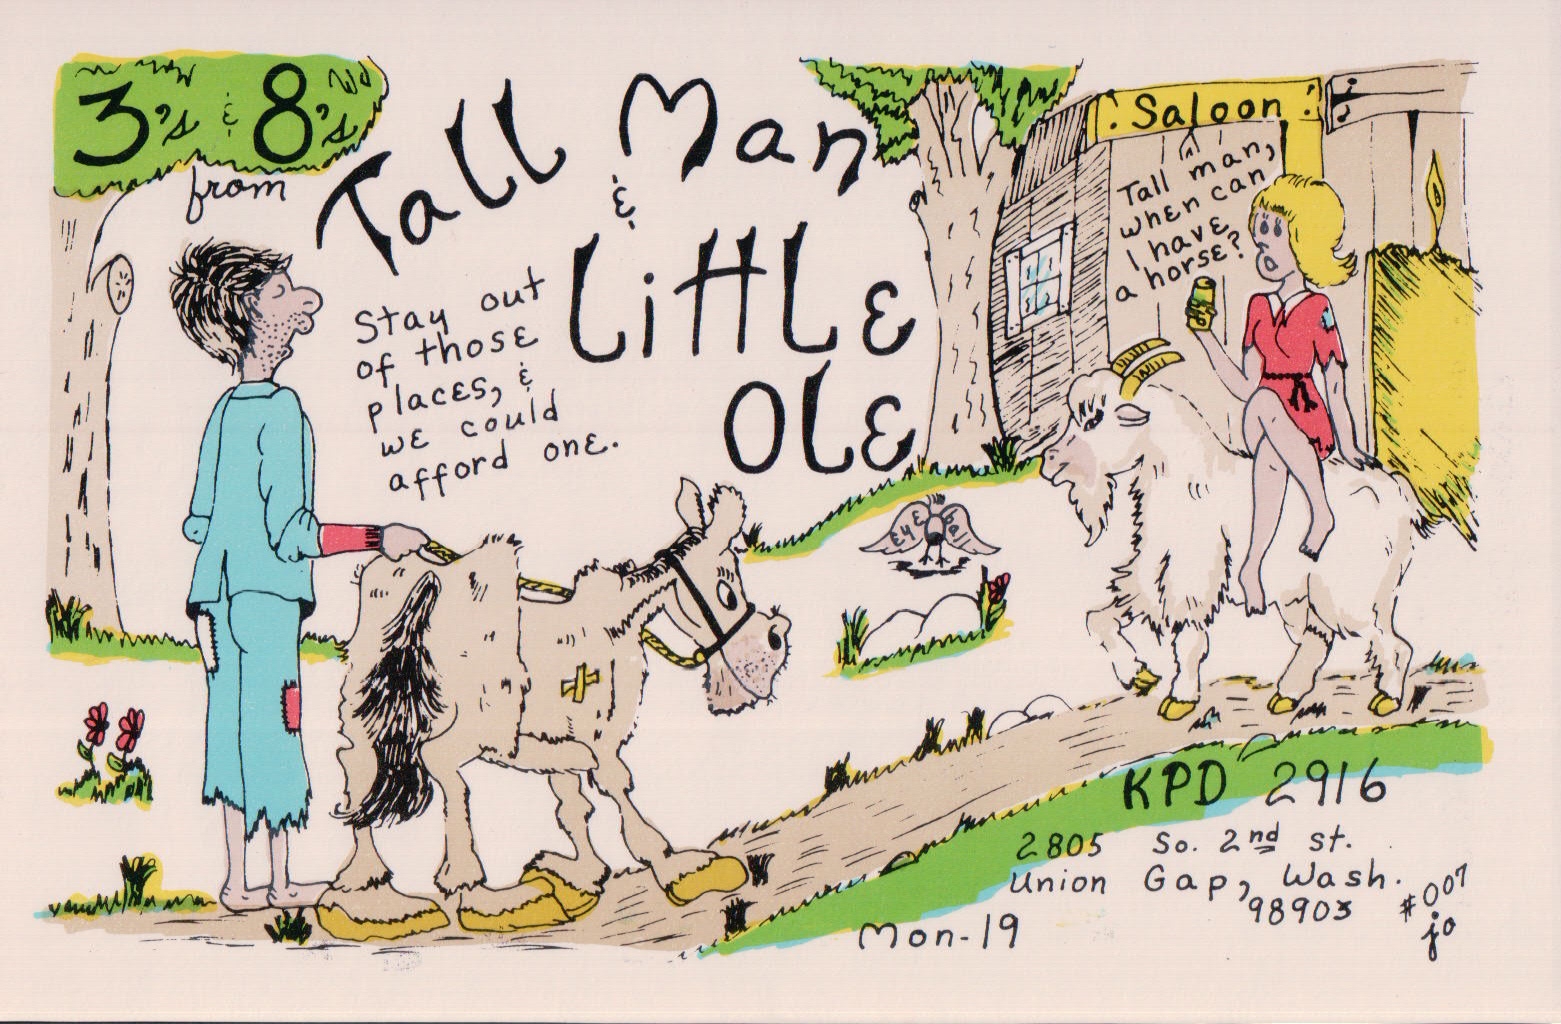 3's & 8's
from
Tall Man
&
Little
Ole
Stay out
of those
places, &
we could
afford one.
Saloon
Tall man,
when can
I have
a horse?
eye ball
KPD 2916
2805 So. 2nd st.
Union Gap, Wash.
98903
Mon-19
#007
jo